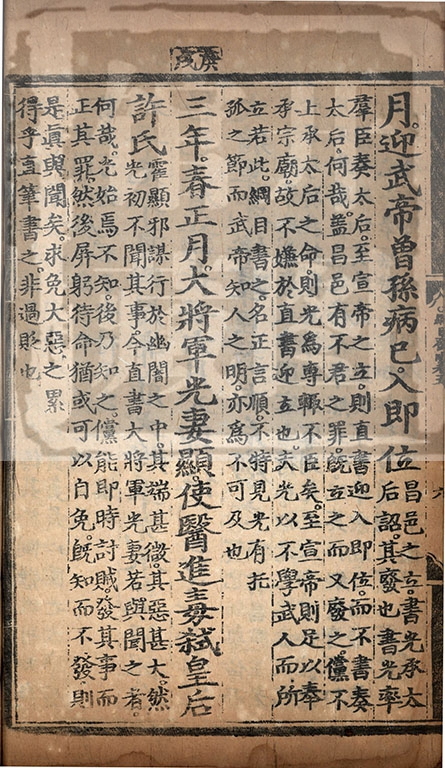 庚戌
月。迎武帝曾孫病已。入即位
昌邑之立。書光承太
后詔。其發也書光率
羣臣奏太后。至宣帝之立。則直書迎入即位。而不書奏
太后。何哉。蓋昌邑有不君之罪。旣立之而又廢之。儻不
上承太后之命。則光為專輒不臣矣。至宣帝則足以奉
承宗廟。故不嫌於直書迎立也。夫光以不學武人。而所
立若此。綱目書之。名正言順。不特見光有托
孤之節。而武帝知人之明。亦為不可及也
三年。春正月。大將軍光妻顯。使醫進毒弑皇后
許氏
霍顯邪謀行於幽闇之中。其端甚微。其惡甚大。然
光初不聞其事。今直書大將軍光妻若與聞之者。
何哉。光始焉不知。後乃知之。儻能即時討賊。發其事而
正其罪。然後屏躬待命。猶或可以自免。旣知而不發。則
是眞與聞矣。求免大惡之累
得乎。直筆書之。非過貶也